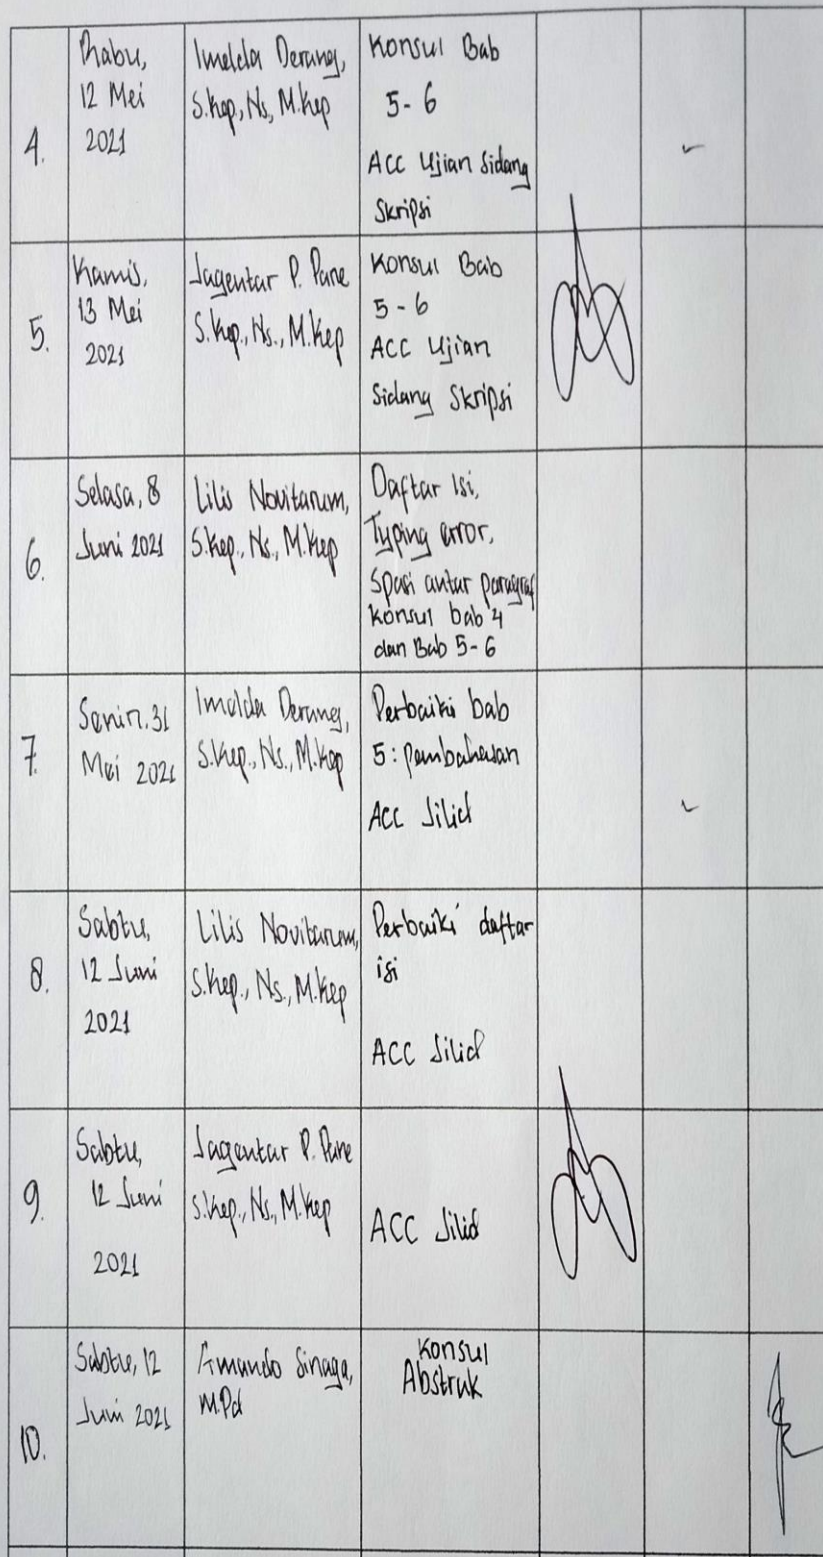 4.
Rabu,
12 Mei
2021
Imelda Derang,
S.Kep, Ns, M.Kep
Konsul Bab
5-6
ACC Ujian Sidang
Skripsi
5.
Kamis,
13 Mei
2021
Jagentar P. Pane
S.Kep., Ns., M.Kep
Konsul Bab
5-6
ACC Ujian
Sidang Skripsi
6.
Selasa, 8
Juni 2021
Lilis Novitarum,
S.Kep., Ns., M.Kep
Daftar Isi,
Typing error,
Spasi antar paragraf
Konsul bab 4
dan Bab 5-6
7.
Senin, 31
Mei 2021
Imelda Derang,
S.Kep., Ns., M.Kep
Perbaiki bab
5: pembahasan
ACC Jilid
8.
Sabtu,
12 Juni
2021
Lilis Novitarum,
S.Kep., Ns., M.Kep
Perbaiki daftar
isi
ACC Jilid
9.
Sabtu,
12 Juni
2021
Jagentar P. Pane
S.Kep., Ns., M.Kep
ACC Jilid
10.
Sabtu, 12
Juni 2021
Amando Sinaga,
M.Pd
Konsul
Abstrak